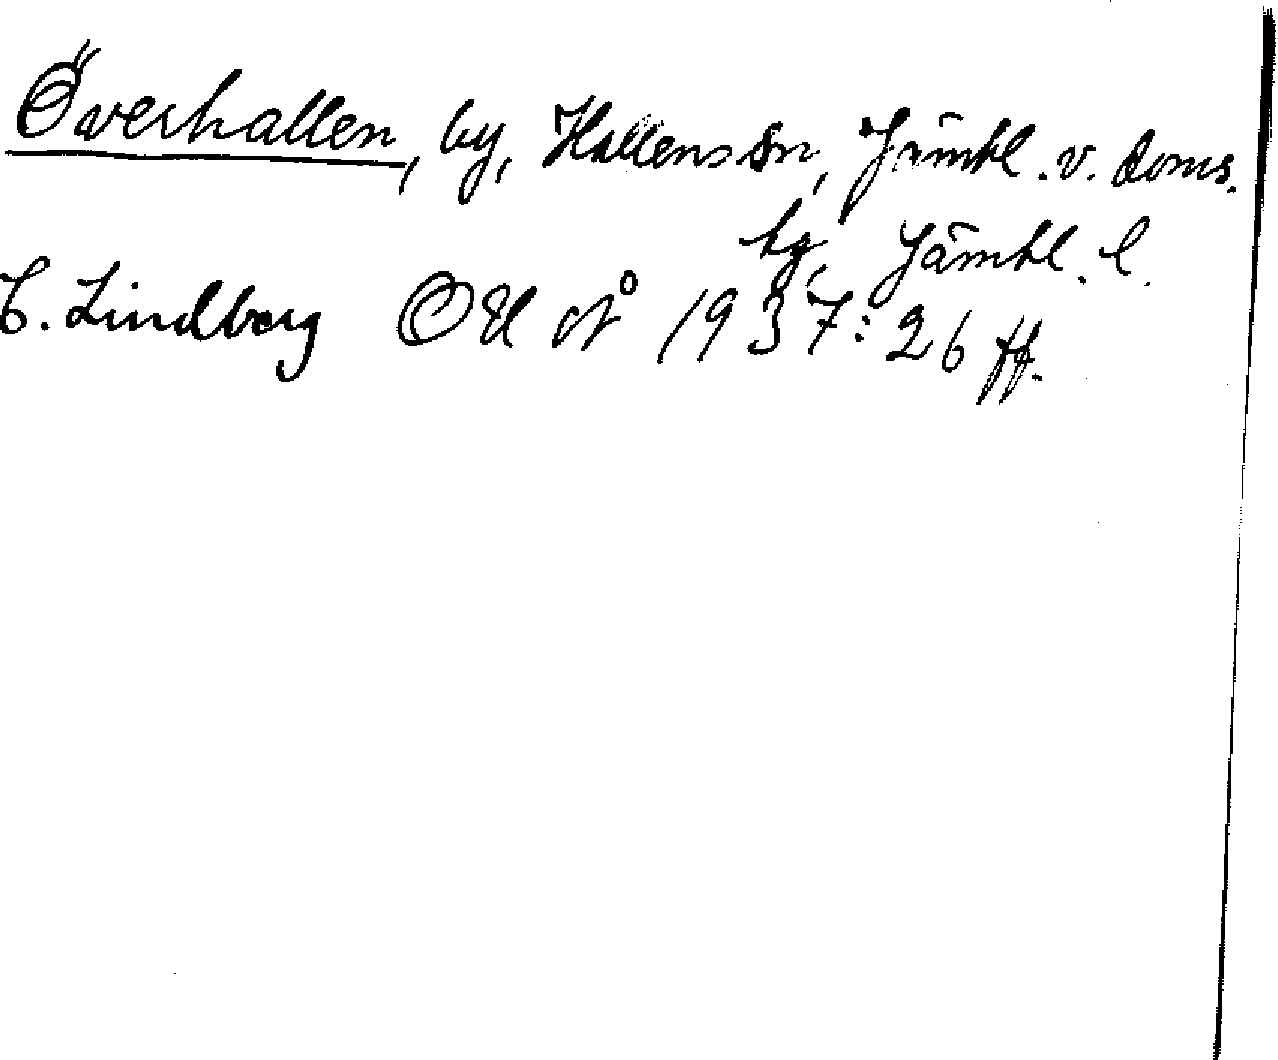 Överhallen, by, Hallens sn, Jämtl. v. doms.
hg, Jämtl. l.
C. Lindberg OU Nº 1937:26 ff.